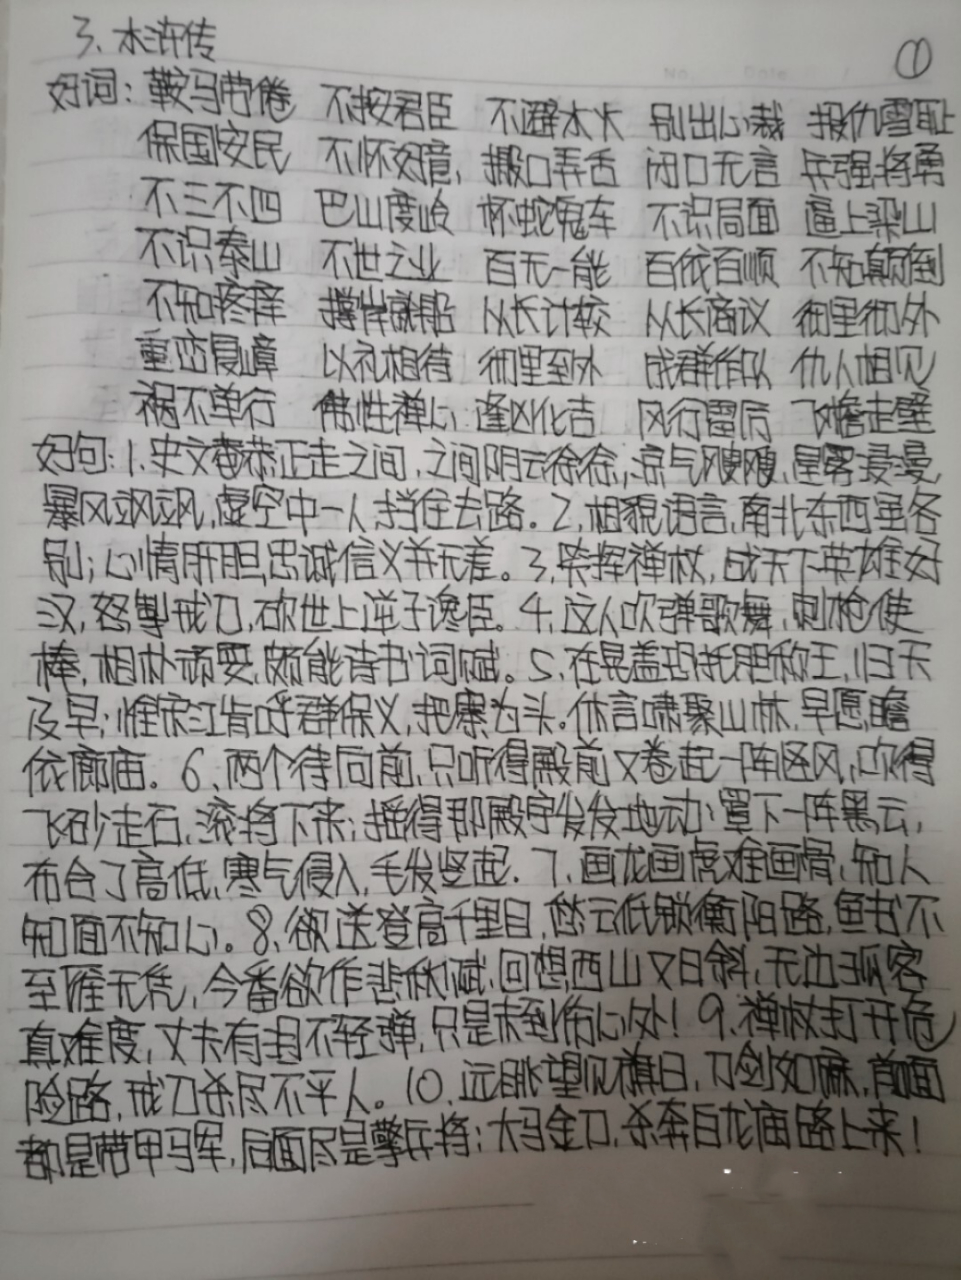 3、水浒传
①
好词：鞍马劳倦 不按君臣 不避水火 别出心裁 报仇雪耻
保国安民 不怀好意 搬口弄舌 闭口无言 兵强将勇
不三不四 巴山度岭 杯蛇鬼车 不识局面 逼上梁山
不识泰山 不世之业 百无一能 百依百顺 不知颠倒
不知疼痒 撑岸就船 从长计较 从长商议 彻里彻外
重峦复嶂 以礼相待 彻里至外 成群作队 仇人相见
祸不单行 佛性禅心 逢凶化吉 风行雷厉 飞檐走壁
好句：1、史文恭正走之间，之间阴云徐徐，凉气飕飕，星雾漫漫，
暴风飒飒，虚空中一人，挡住去路。2、相貌语言，南北东西虽各
别；心情肝胆，忠诚信义并无差。3、笑挥禅杖，战天下英雄好
汉，怒掣戒刀，砍世上逆子谗臣。4、这人吹弹歌舞，刺枪使
棒，相扑顽耍，颇能诗书词赋。5、在晁盖恐托胆称王，归天
及早；惟宋江肯呼群保义，把寨为头。休言啸聚山林，早愿瞻
依廊庙。6、两个待向前，只听得殿前又卷起一阵怪风，吹得
飞砂走石，滚将下来；摇得那殿宇发发地动；罩下一阵黑云，
布合了高低，寒气侵人，毛发竖起。7、画龙画虎难画骨，知人
知面不知心。8、欲送登高千里目，愁云低锁衡阳路，鱼书不
至雁无凭，今番欲作悲秋赋，回想西山又日斜，无边孤客
真难度，丈夫有泪不轻弹，只是未到伤心处！9、禅杖打开危
险路，戒刀杀尽不平人。10、远眺望见旗日，刀剑如麻，前面
都是带甲马军，后面尽是擎兵将；大马金刀，杀奔白龙庙路上来！